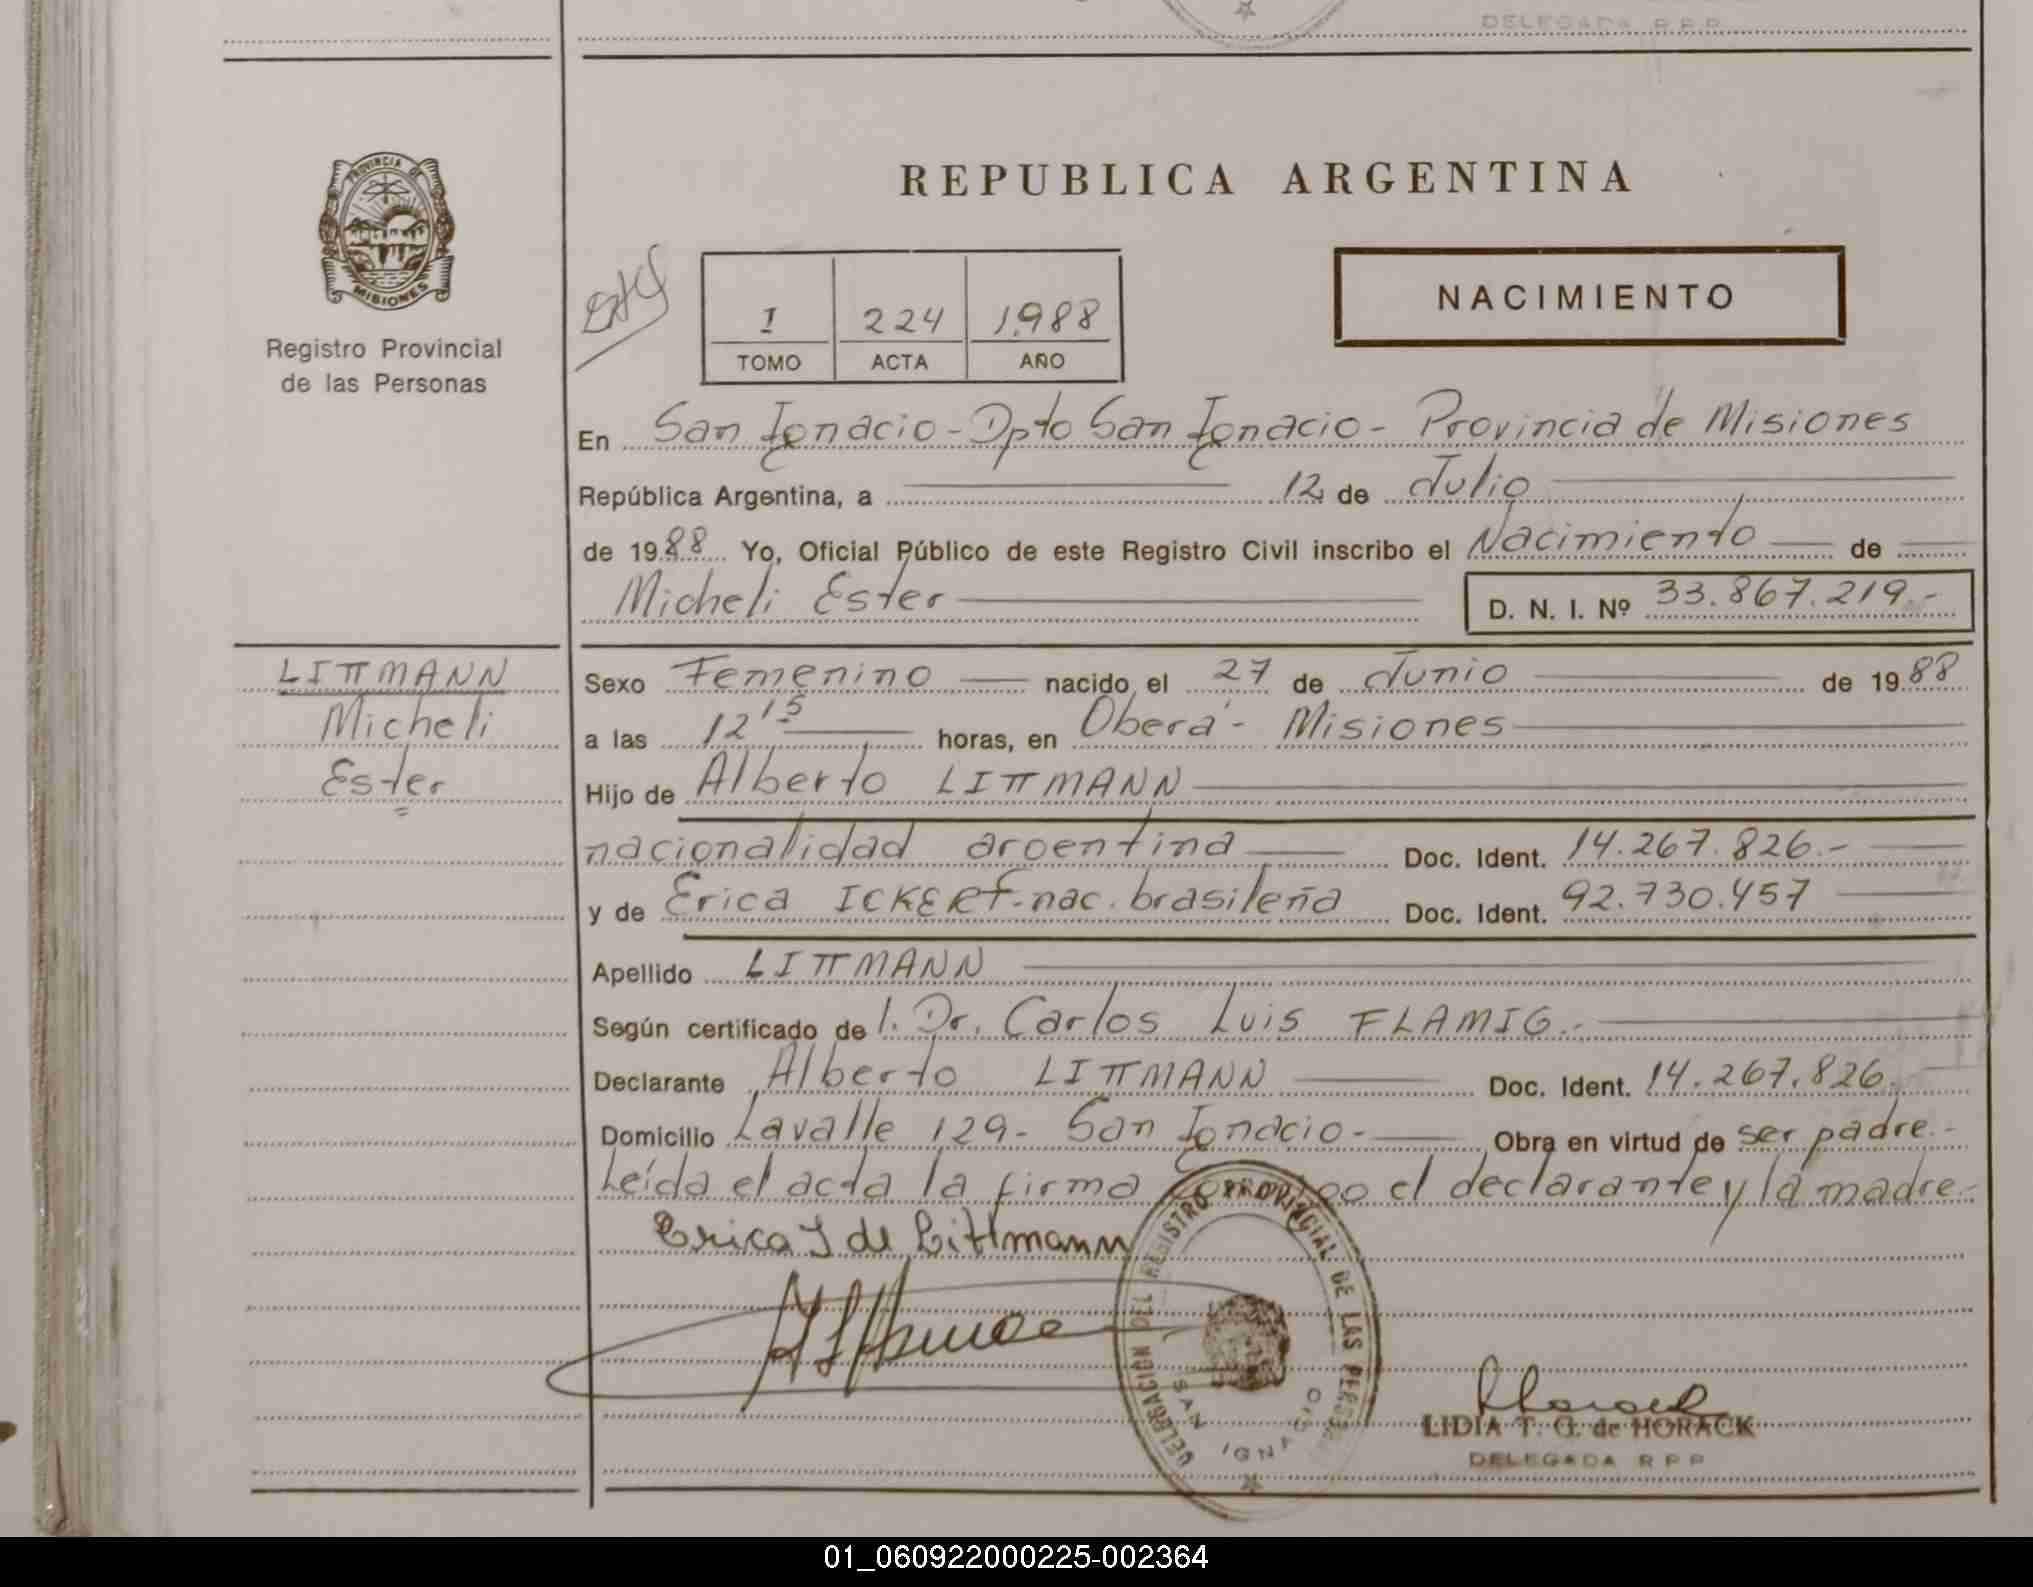 DELEGADA R.P.P.
PROVINCIA DE
MISIONES
Registro Provincial
de las Personas
REPUBLICA ARGENTINA
NACIMIENTO
I 224 1.988
TOMO ACTA AÑO
En San Ignacio - Dpto San Ignacio - Provincia de Misiones
República Argentina, a 12 de Julio
de 1988 Yo, Oficial Público de este Registro Civil inscribo el Nacimiento de
Micheli Ester D. N. I. Nº 33.867.219.-
LITTMANN
Micheli
Ester
Sexo Femenino nacido el 27 de Junio de 1988
a las 12 15 horas, en Oberá - Misiones
Hijo de Alberto LITTMANN
nacionalidad argentina Doc. Ident. 14.267.826.-
y de Erica ICKERT - nac. brasileña Doc. Ident. 92.730.457
Apellido LITTMANN
Según certificado de l. Dr. Carlos Luis FLAMIG.-
Declarante Alberto LITTMANN Doc. Ident. 14.267.826.
Domicilio Lavalle 129 - San Ignacio - Obra en virtud de ser padre.-
Leída el acta la firma conmigo el declarante y la madre.-
Erica I de Littmann
DELEGACION DEL REGISTRO PROVINCIAL DE LAS PERSONAS
SAN IGNACIO
LIDIA T. G. de HORACK
DELEGADA R P P
01_060922000225-002364